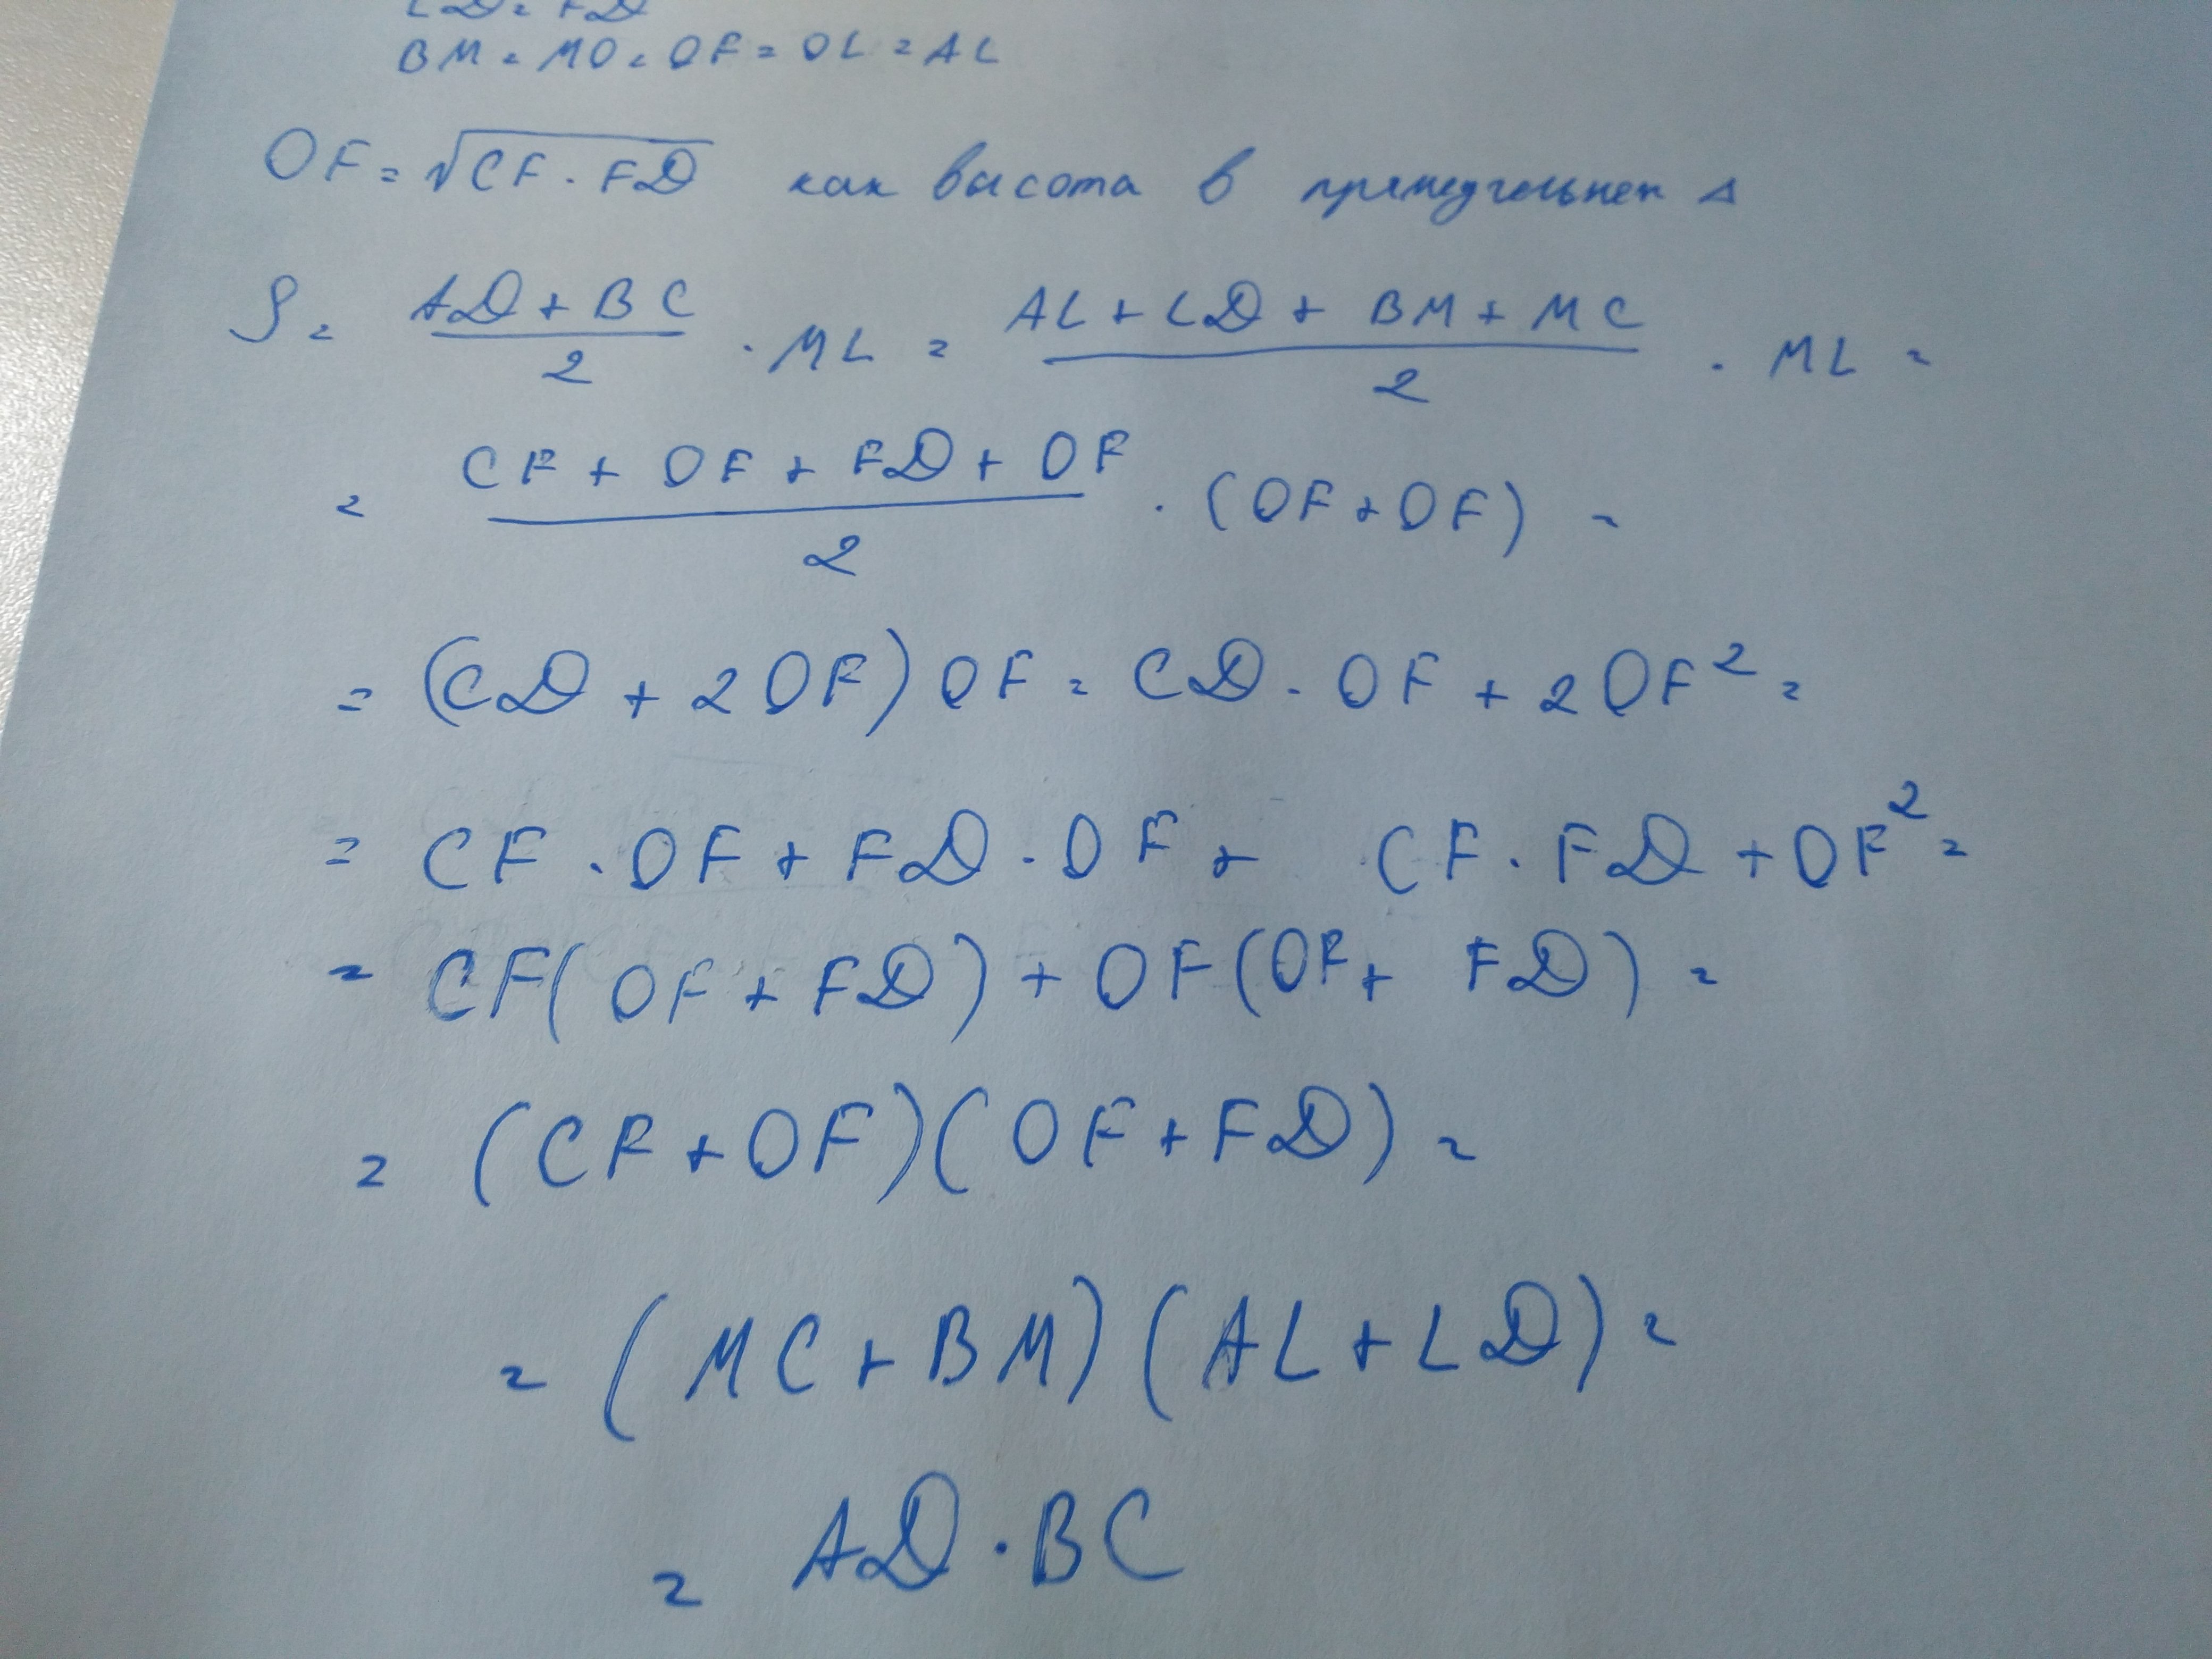 LD = FD
BM = MO = OF = OL = AL
OF = √CF · FD как высота в прямоугольном Δ
S = (AD + BC)/2 · ML = (AL + LD + BM + MC)/2 · ML =
= (CF + OF + FD + OF)/2 · (OF + OF) =
= (CD + 2OF) OF = CD · OF + 2OF² =
= CF · OF + FD · OF + CF · FD + OF² =
= CF(OF + FD) + OF(OF + FD) =
= (CF + OF)(OF + FD) =
= (MC + BM)(AL + LD) =
= AD · BC